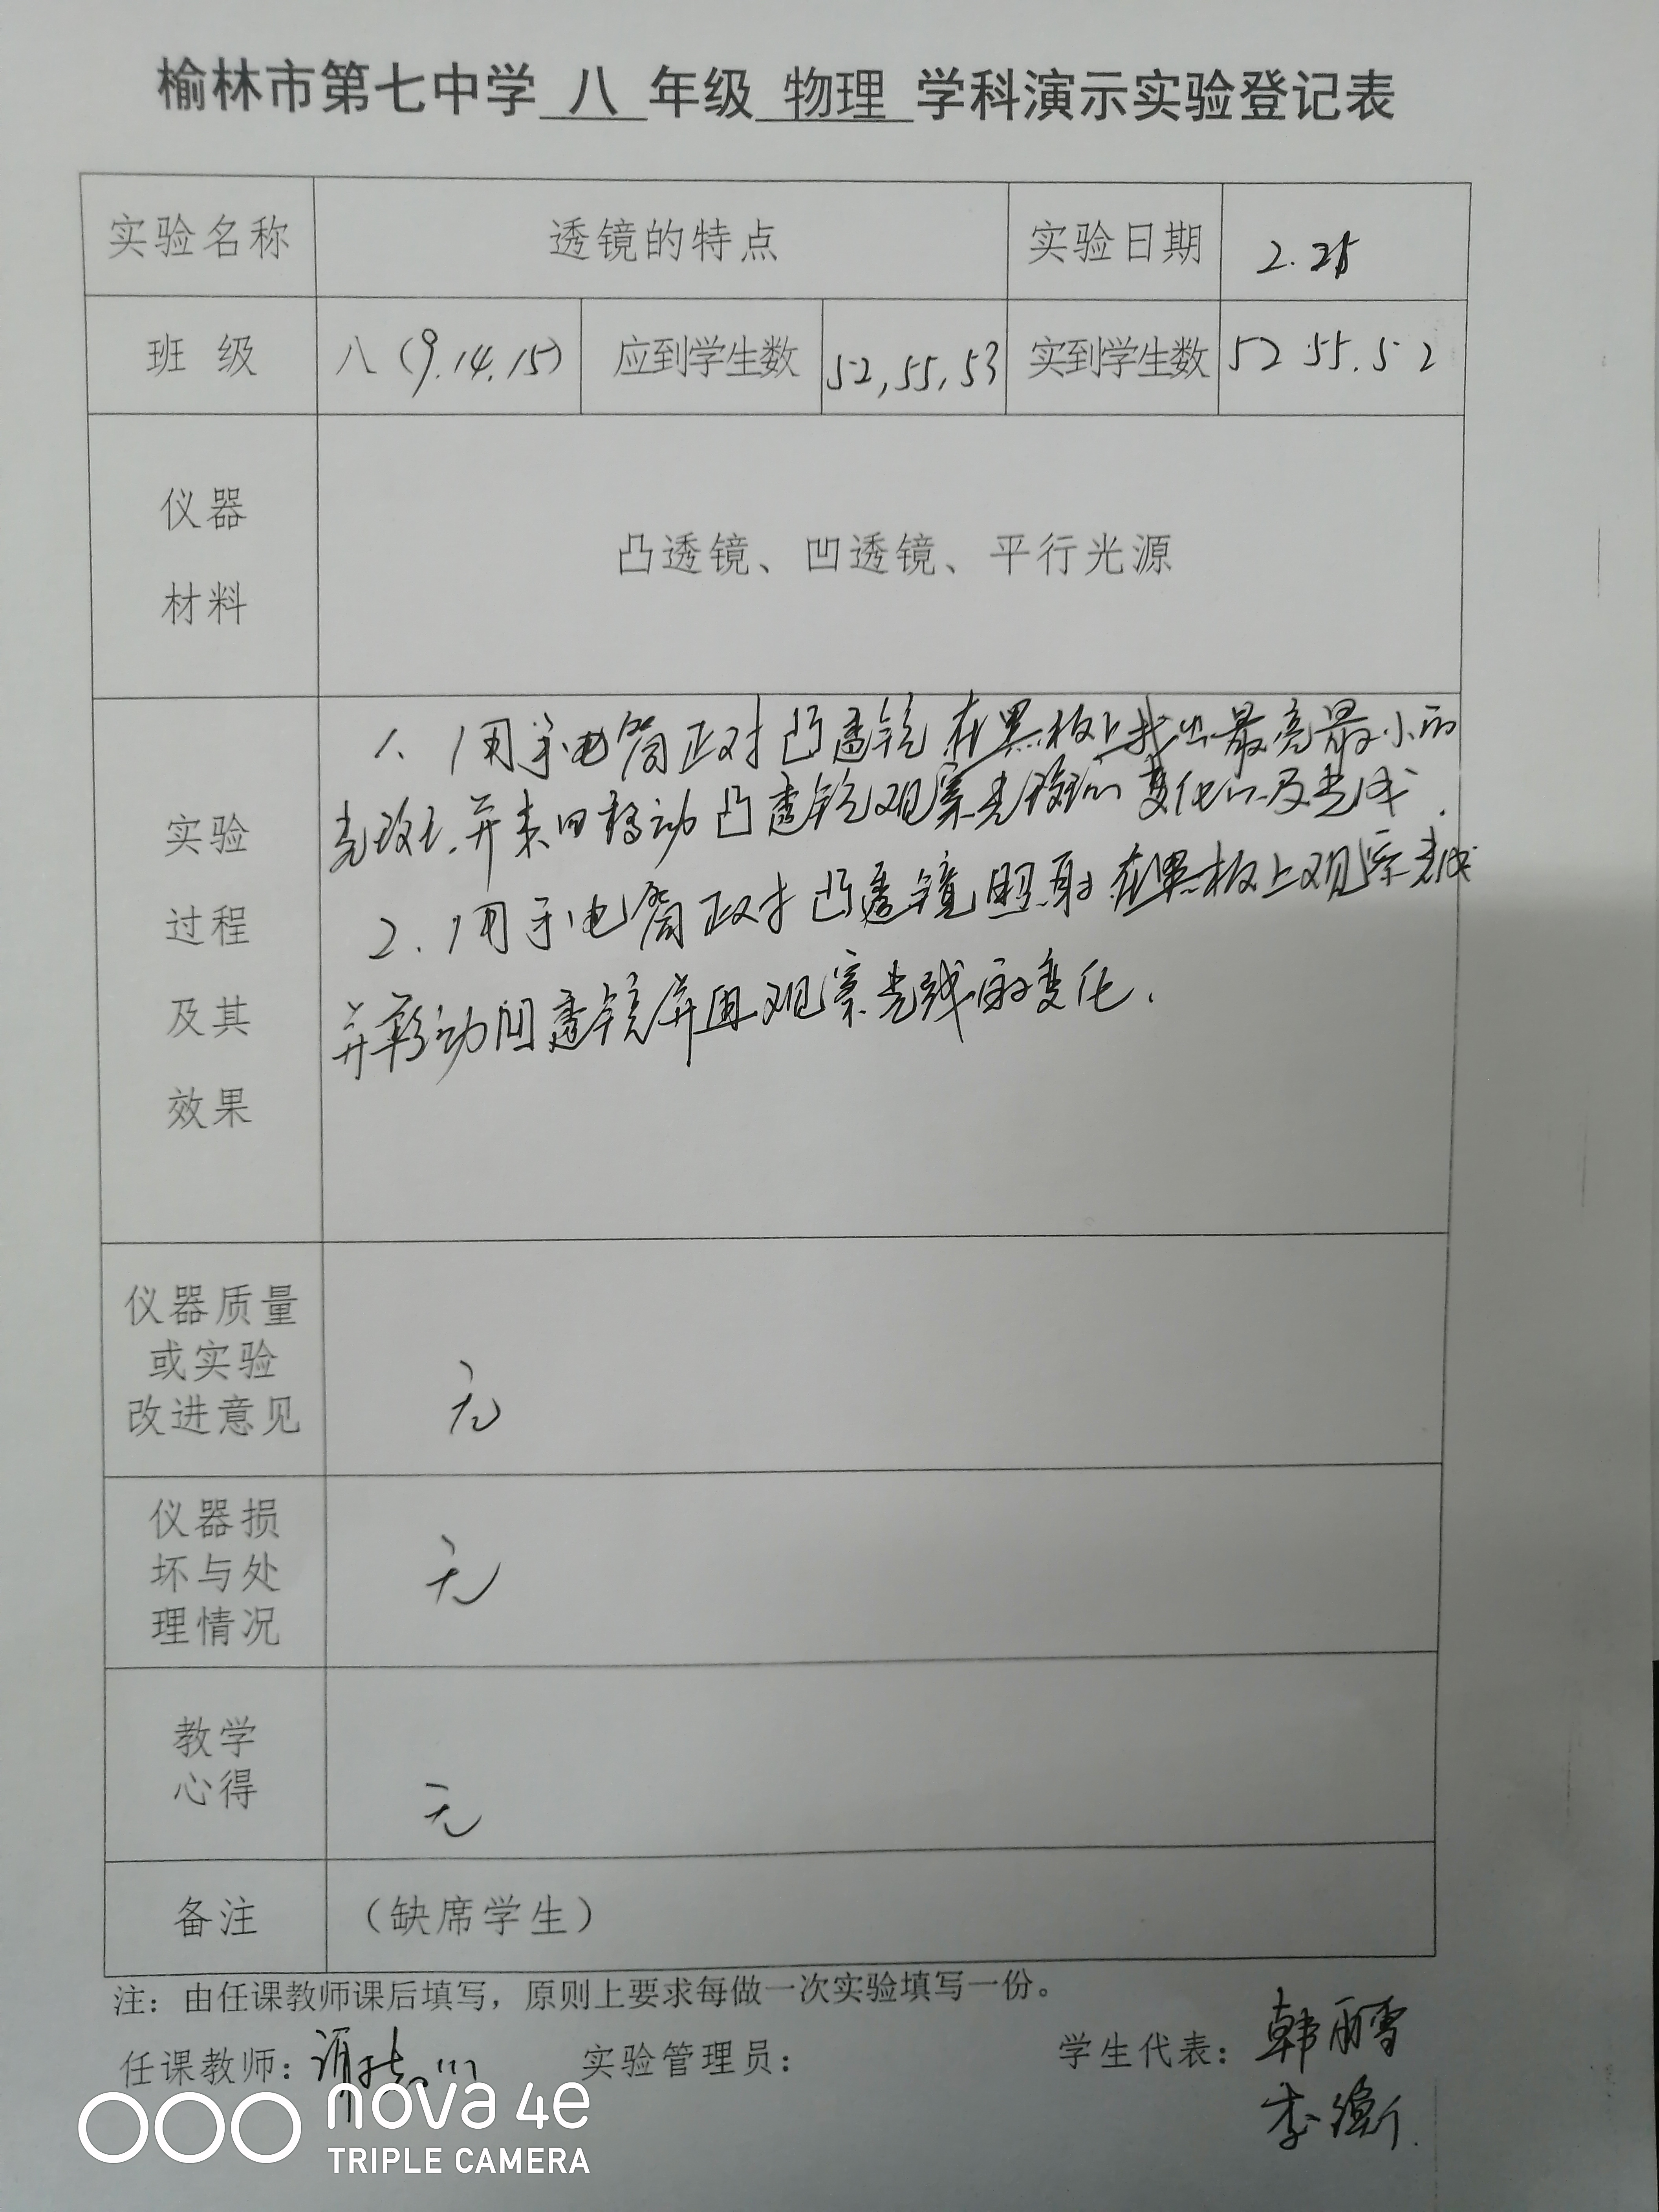 榆林市第七中学 八 年级 物理 学科演示实验登记表
实验名称 透镜的特点 实验日期 2.25
班 级 八(9.14.15) 应到学生数 52,55,53 实到学生数 52 55.52
仪器
材料
凸透镜、凹透镜、平行光源
实验
过程
及其
效果
1、用手电筒正对凸透镜在黑板上找出最亮最小的
并来回移动凸透镜观察光 的变化以及
2、用手电筒正对凸透镜照射在黑板上观察光
并移动凹透镜 观察光线的变化.
仪器质量
或实验
改进意见
无
仪器损
坏与处
理情况
无
教学
心得
无
备注 (缺席学生)
注：由任课教师课后填写，原则上要求每做一次实验填写一份。
任课教师： 实验管理员： 学生代表：韩丽雪
李
nova 4e
TRIPLE CAMERA